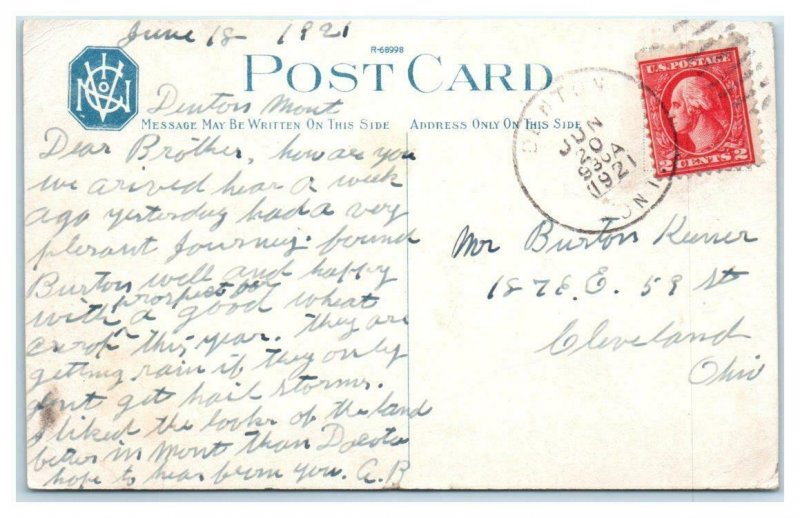 June 18 1921
R-68998
POST CARD
Denton Mont
MESSAGE MAY BE WRITTEN ON THIS SIDE
ADDRESS ONLY ON THIS SIDE
Dear Brother, how are you
we arived hear a week
ago yesterday had a very
plesant Journey. found
Burton well and happy
with a prospect for good wheat
crop this year. They are
getting rain if they only
dont get hail storms.
I liked the looks of the land
better in Mont than Dacota
hope to hear from you. A.B
U.S. POSTAGE
2 CENTS 2
DENTON
JUN
20
1921
Mr Burton
1878 E. 59 St
Cleveland
Ohio